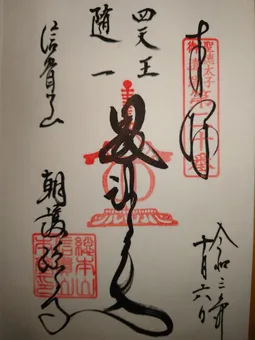 奉拝
四天王
随一
毘沙門天
信貴山
朝護孫子
令和三年
十月六日
総本山